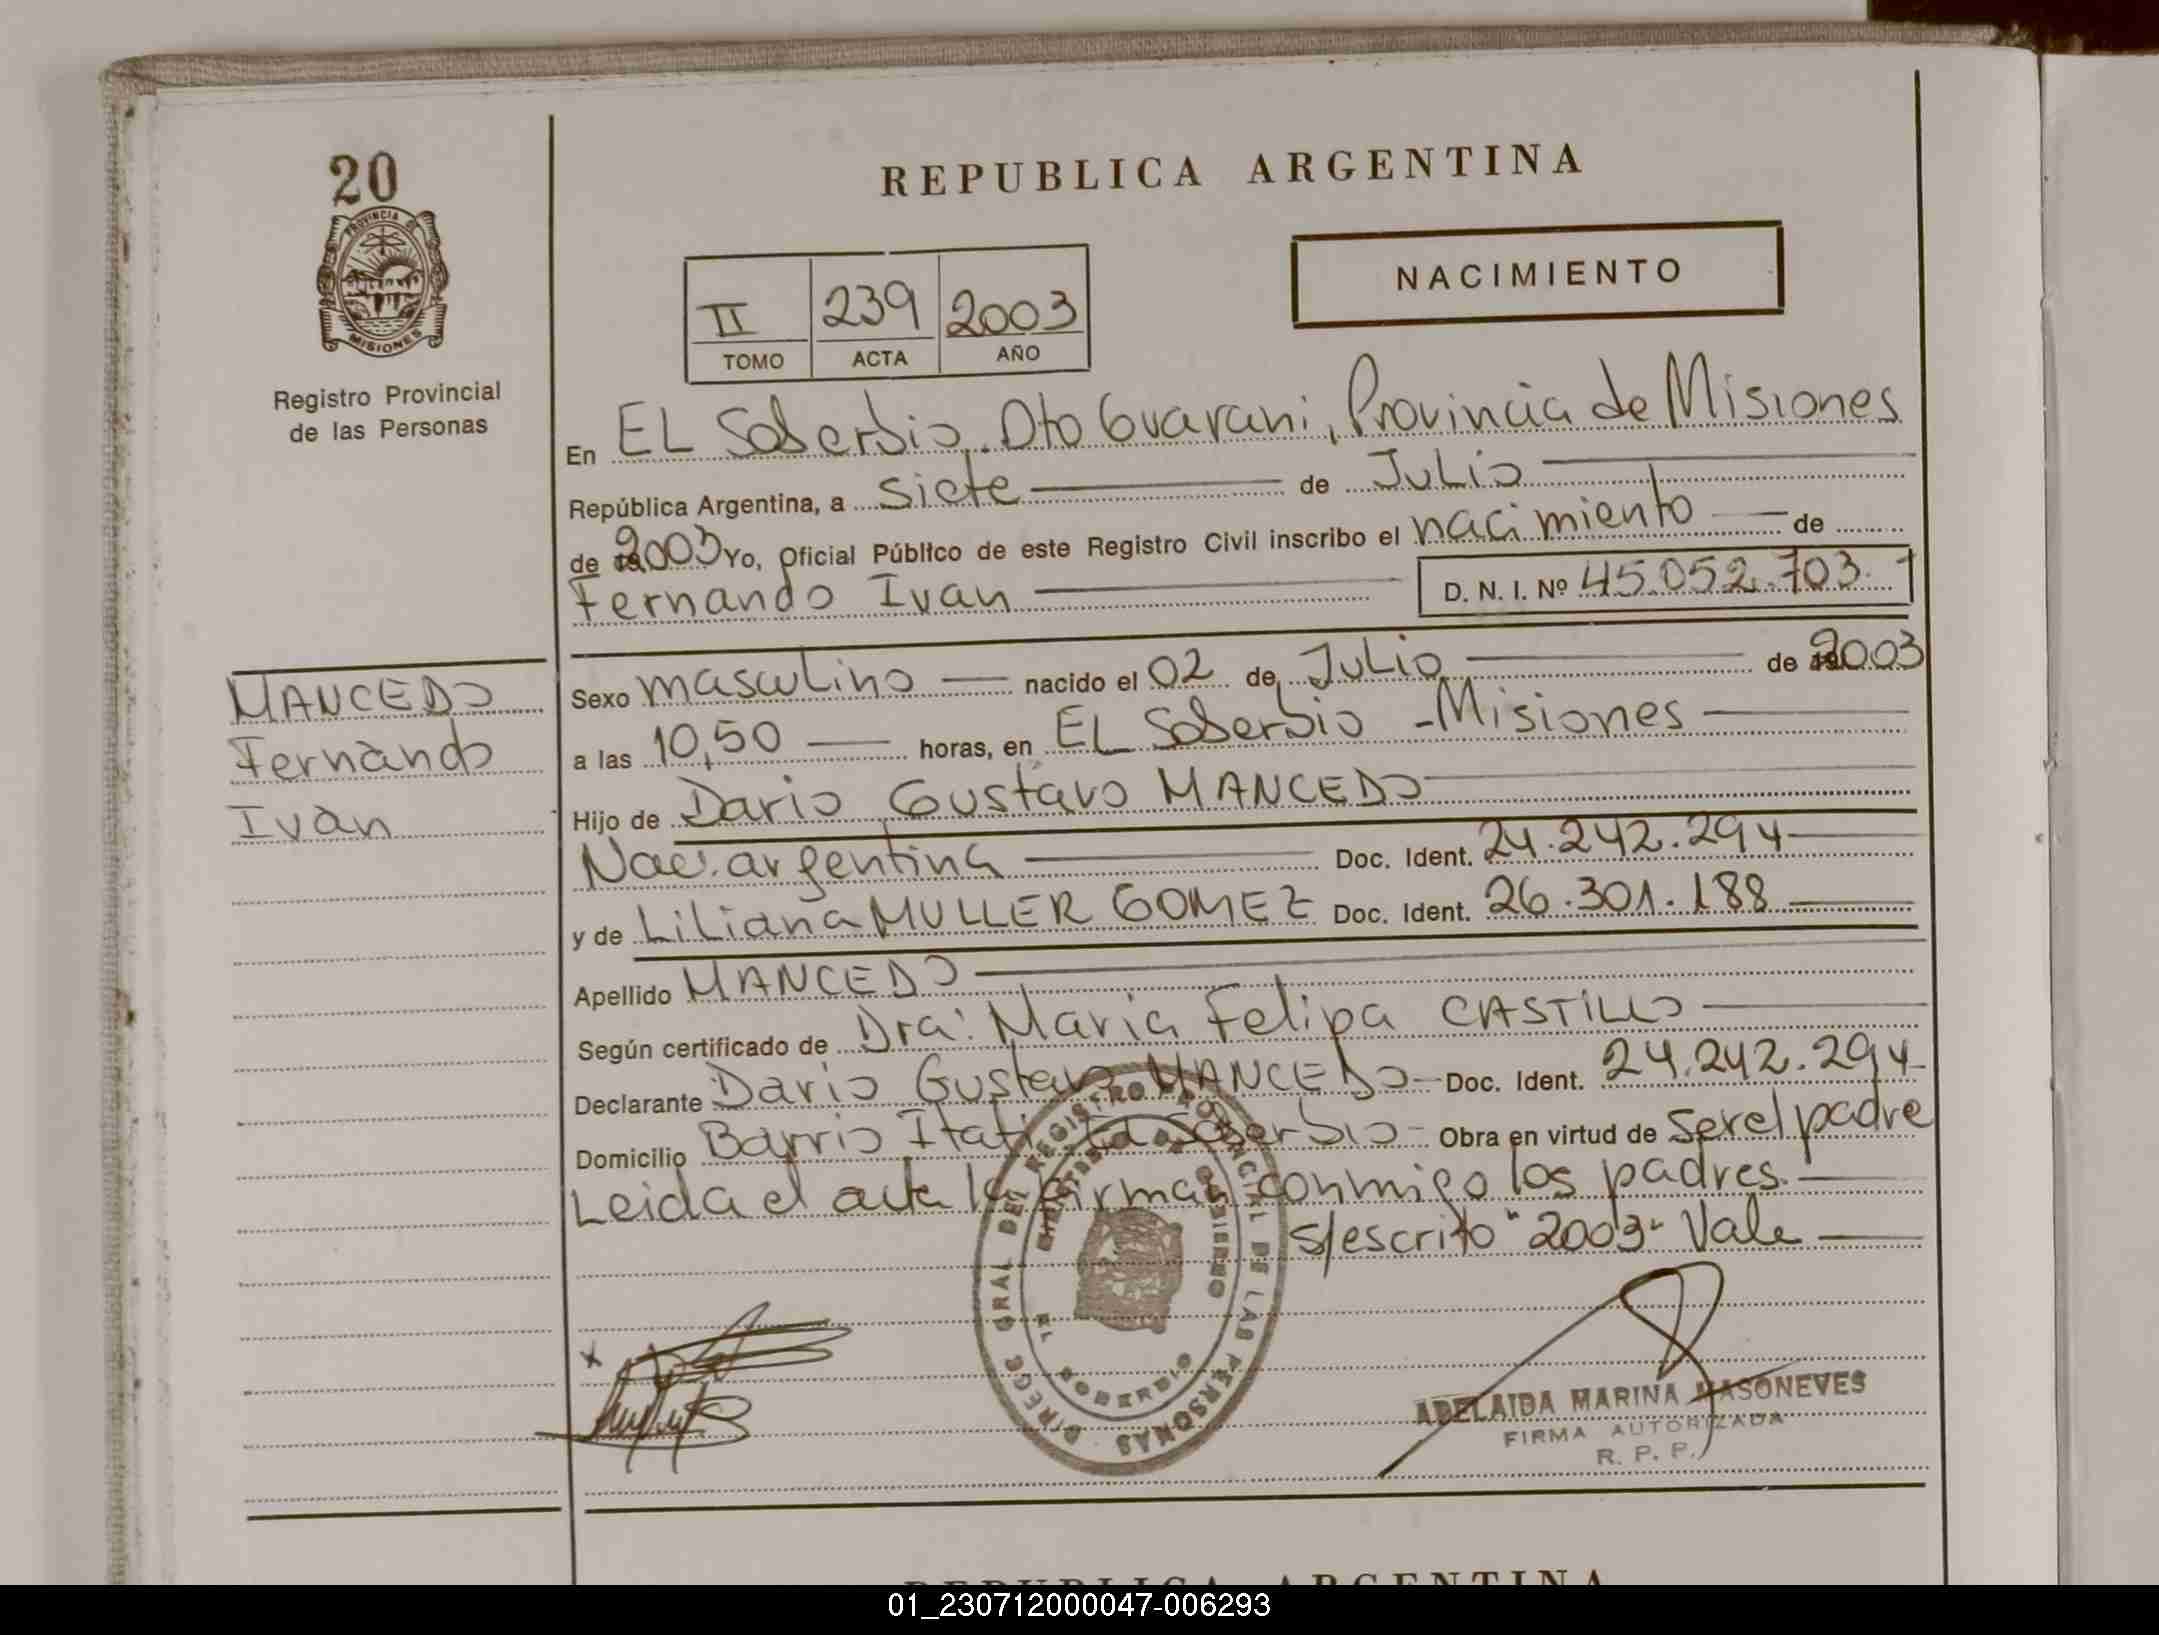 20
PROVINCIA DE
MISIONES
Registro Provincial
de las Personas
MANCEDO
Fernando
Ivan
REPUBLICA ARGENTINA
NACIMIENTO
II 239 2003
TOMO ACTA AÑO
En EL Soberbio, Dto Guarani, Provincia de Misiones
República Argentina, a siete de Julio
de 2003 Yo, Oficial Público de este Registro Civil inscribo el nacimiento de
Fernando Ivan D. N. I. Nº 45.052.703.
Sexo masculino nacido el 02 de Julio de 2003
a las 10,50 horas, en EL Soberbio - Misiones
Hijo de Dario Gustavo MANCEDO
Nac. argentina Doc. Ident. 24.242.294
y de Liliana MULLER GOMEZ Doc. Ident. 26.301.188
Apellido MANCEDO
Según certificado de Dra: Maria Felipa CASTILLO
Declarante Dario Gustavo MANCEDO - Doc. Ident. 24.242.294
Domicilio Barrio Itati Soberbio - Obra en virtud de ser el padre
Leida el acta la firman conmigo los padres.
s/escrito "2003" Vale
DIRECC GRAL DEL REGISTRO PROVINCIAL DE LAS PERSONAS
GOBIERNO
EL SOBERBIO
x
ADELAIDA MARINA MASONEVES
FIRMA AUTORIZADA
R. P. P.
REPUBLICA ARGENTINA
01_230712000047-006293